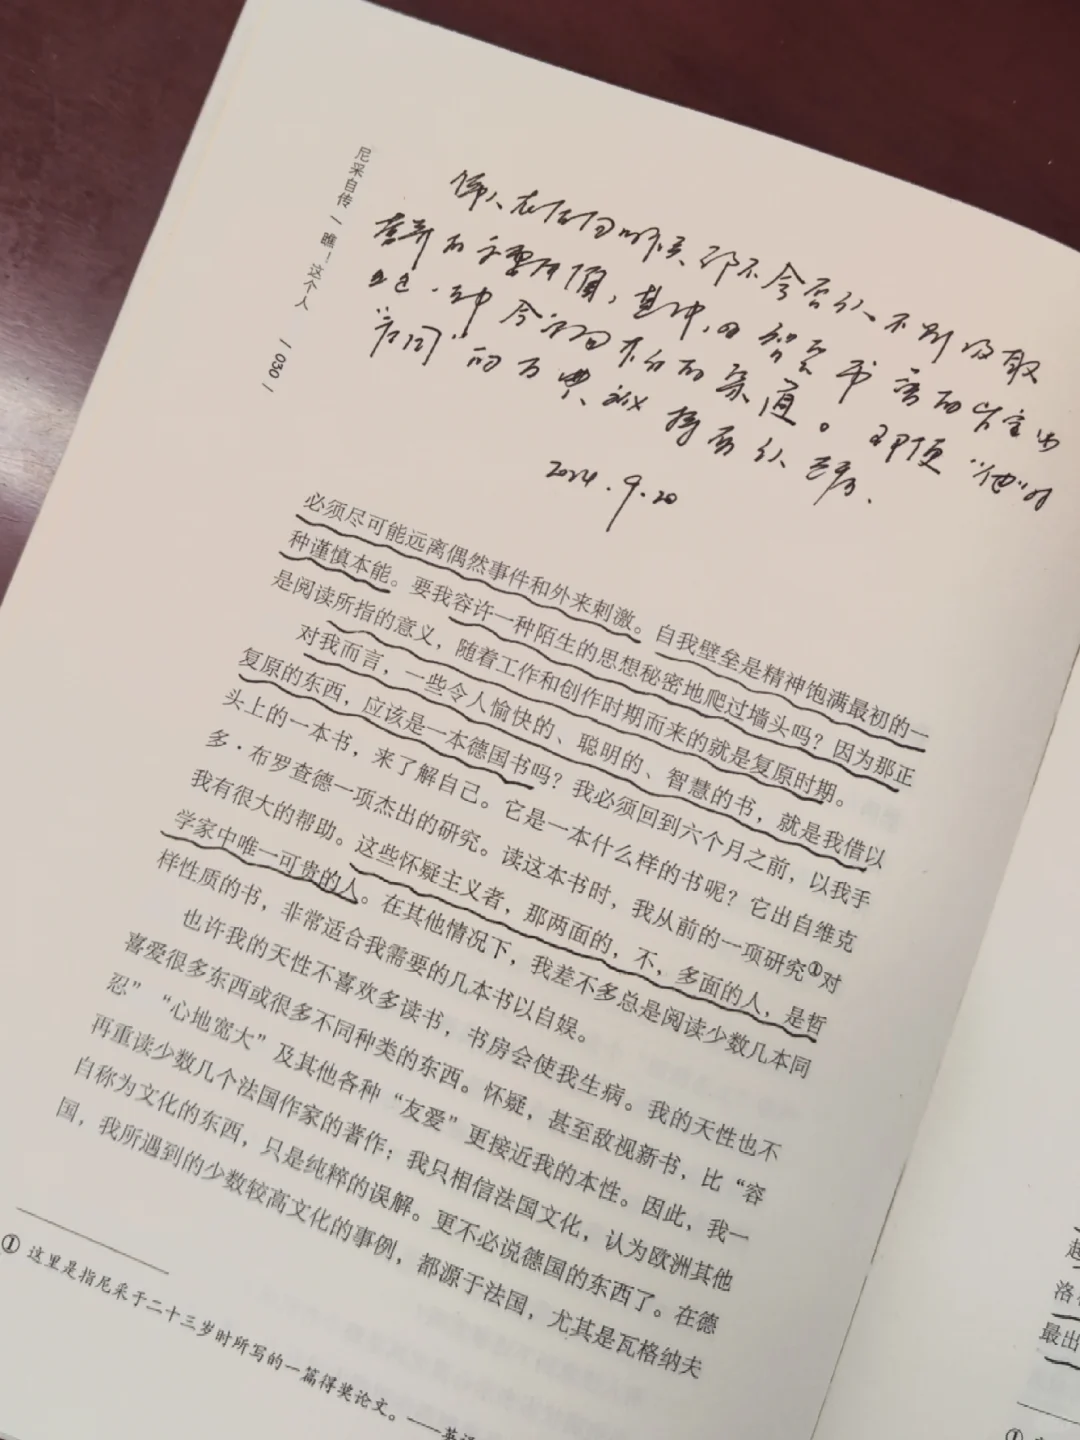 尼采自传 | 瞧！这个人 / 030 /
不会否认 不断汲取
其中
一种 的
的 即便 “他”的
2024.9.20
必须尽可能远离偶然事件和外来刺激。自我壁垒是精神饱满最初的一
种谨慎本能。要我容许一种陌生的思想秘密地爬过墙头吗？因为那正
是阅读所指的意义，随着工作和创作时期而来的就是复原时期。
对我而言，一些令人愉快的、聪明的、智慧的书，就是我借以
复原的东西，应该是一本德国书吗？我必须回到六个月之前，以我手
头上的一本书，来了解自己。它是一本什么样的书呢？它出自维克
多·布罗查德一项杰出的研究。读这本书时，我从前的一项研究①对
我有很大的帮助。这些怀疑主义者，那两面的，不，多面的人，是哲
学家中唯一可贵的人。在其他情况下，我差不多总是阅读少数几本同
样性质的书，非常适合我需要的几本书以自娱。
也许我的天性不喜欢多读书，书房会使我生病。我的天性也不
喜爱很多东西或很多不同种类的东西。怀疑，甚至敌视新书，比“容
忍”“心地宽大”及其他各种“友爱”更接近我的本性。因此，我一
再重读少数几个法国作家的著作；我只相信法国文化，认为欧洲其他
自称为文化的东西，只是纯粹的误解。更不必说德国的东西了。在德
国，我所遇到的少数较高文化的事例，都源于法国，尤其是瓦格纳夫
① 这里是指尼采于二十三岁时所写的一篇得奖论文。——英译
洛
最出
①